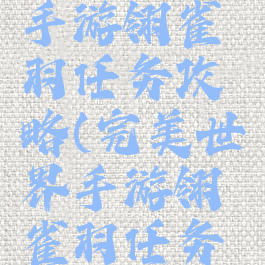 手游翎雀
羽任务攻
略(完美世
界手游翎
雀羽任务